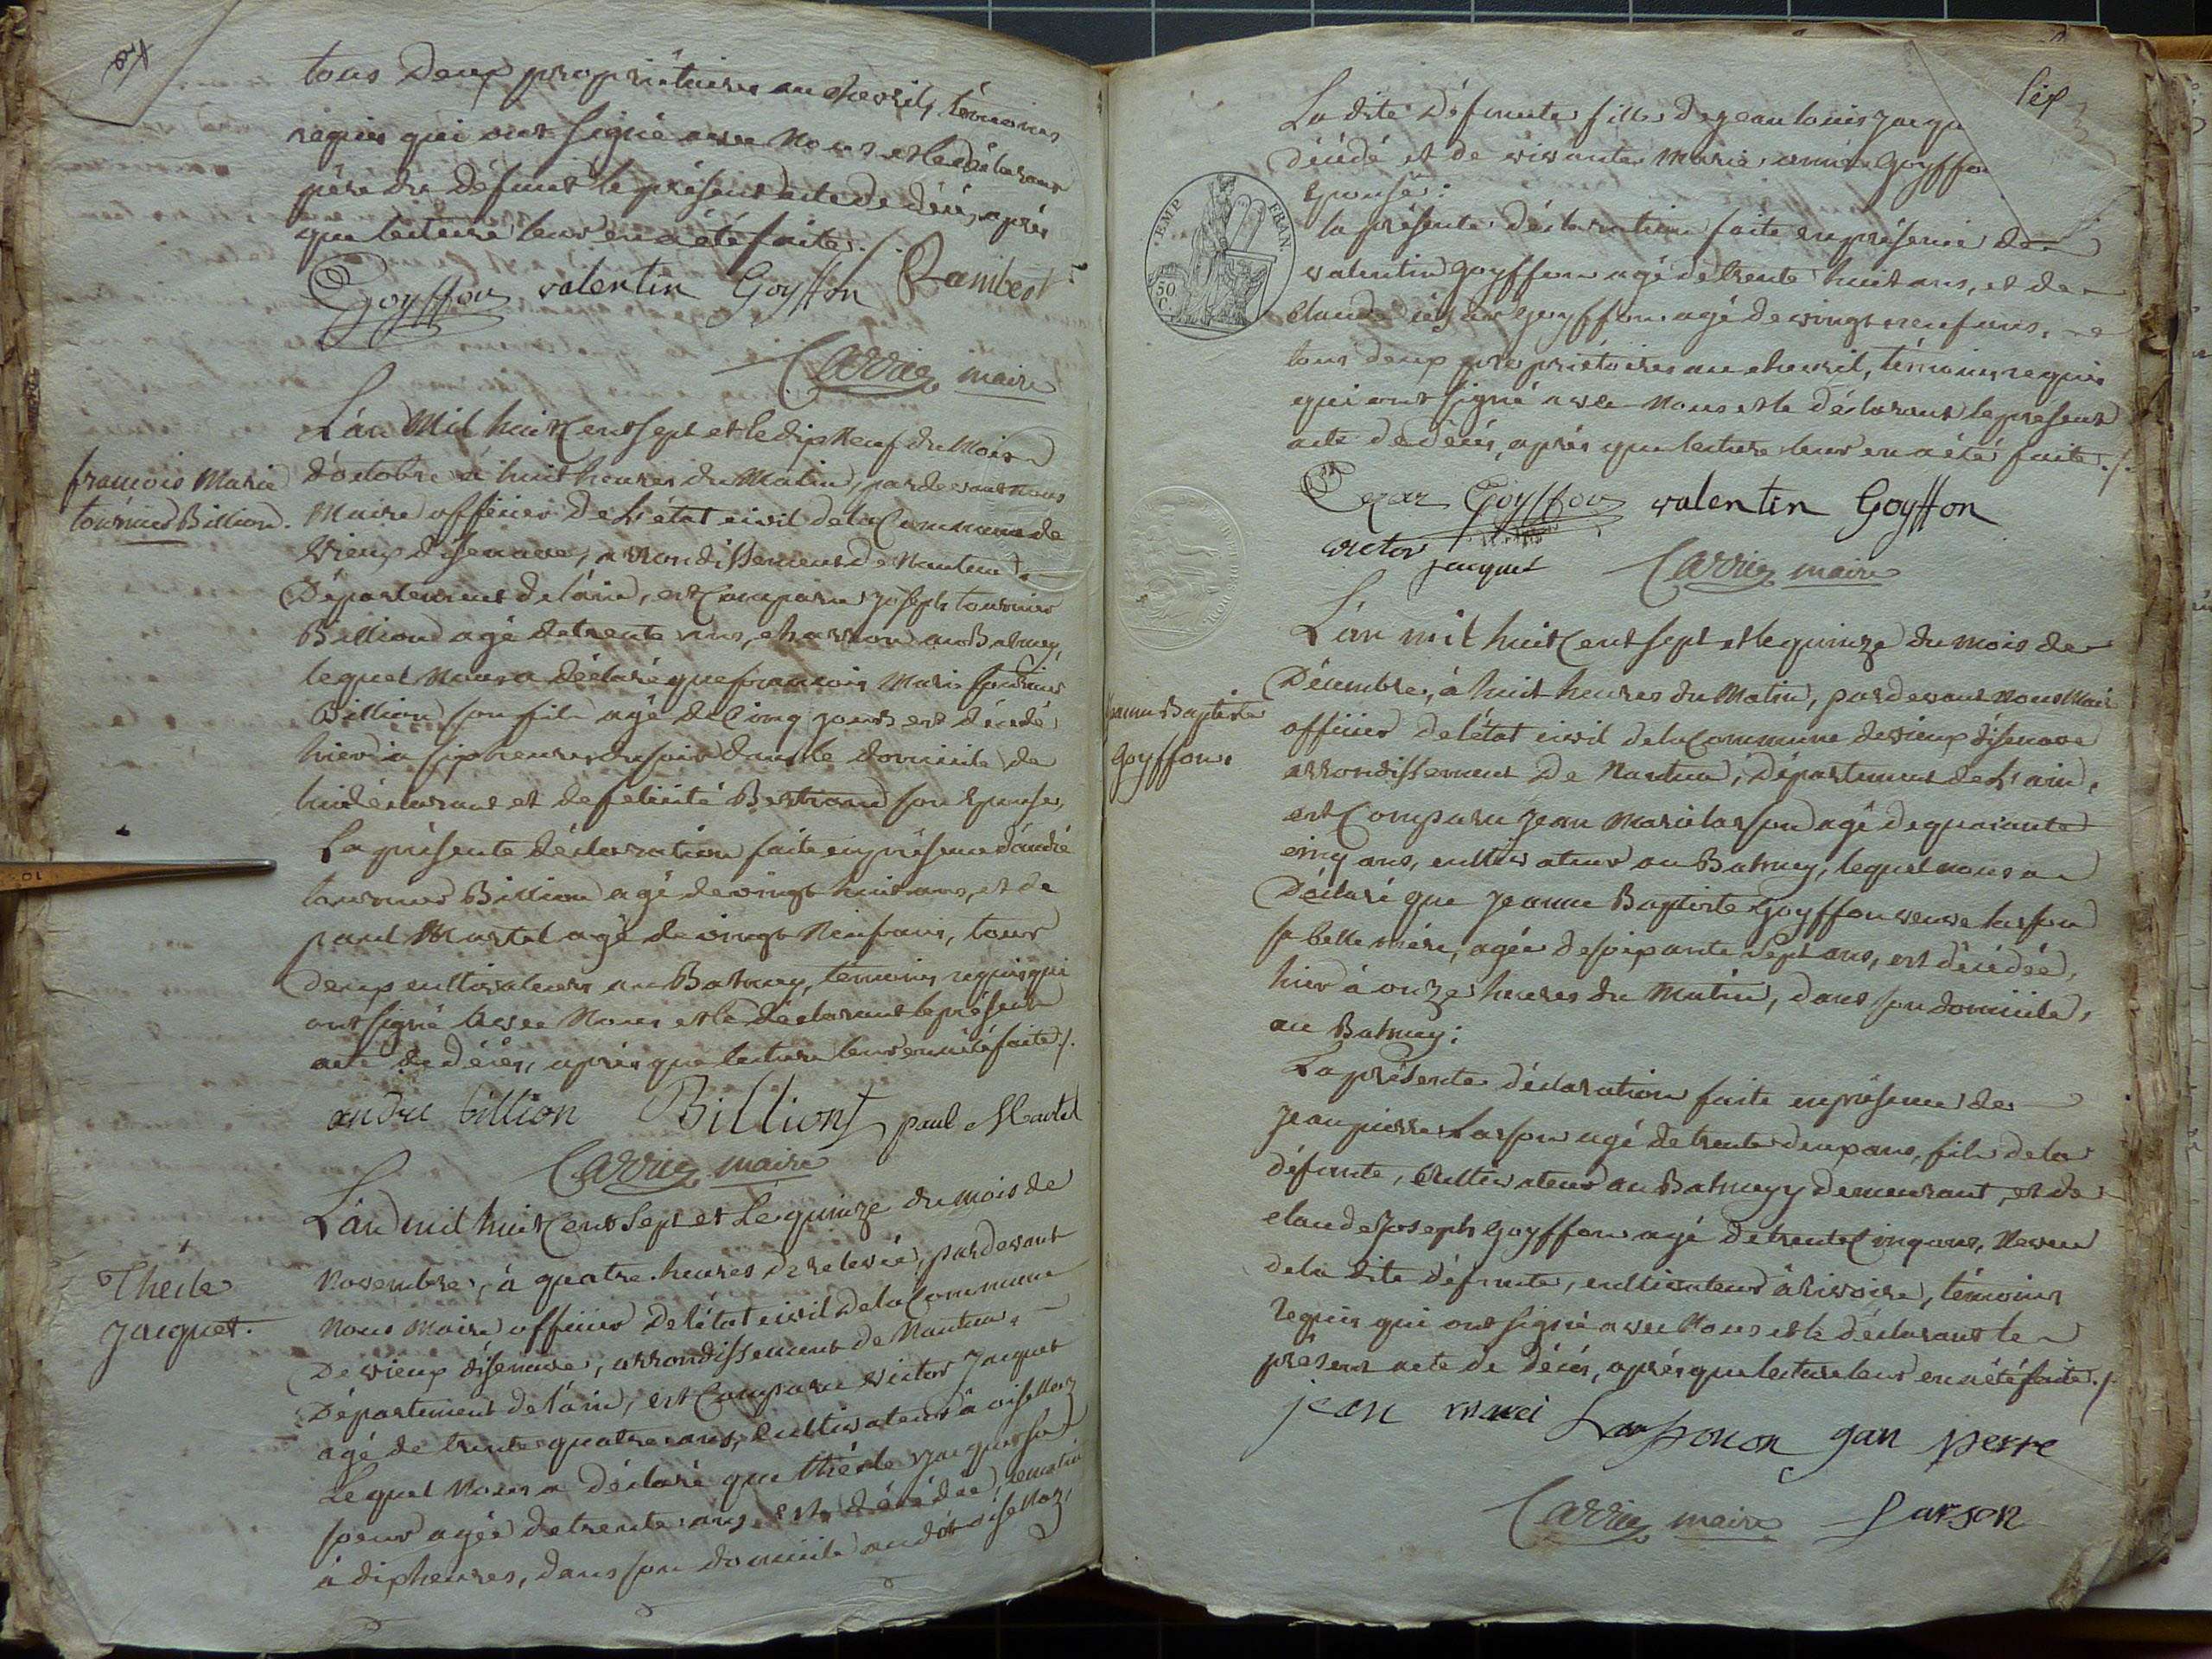 tous deux propriétaires au chevril, témoins
requis qui ont signé avec Nous et le déclarant
père du défunt le présent acte de décès, après
que lecture leur en a été faite ./.
Goyffon valentin Goyffon Rambert
Carrier maire
françois Marie
tournier Billion.
L'an Mil huit Cent sept et le dix Neuf du Mois
d'octobre à huit heures du Matin, pardevant nous
Maire officier de L'état civil de la Commune de
vieux disenave, arrondissement de Nantua,
Département de l'ain, est Comparu joseph tournier
Billion agé de trente ans, charron au Balmey,
lequel Nous a déclaré que françois Marie tournier
Billion son fils agé de Cinq jours est décédé
hier à six heures du soir dans le domicile de
lui déclarant et de felicité Bertrand son Epouse,
La présente déclaration faite en présence d'andré
tournier Billion agé de vingt huit ans, et de
paul Martel agé de vingt Neuf ans, tous
deux cultivateurs au Balmey, témoins requis qui
ont signé avec Nous et le déclarant le présent
acte de décès, après que lecture leur en a été faite ./.
andre billion Billiont paul Martel
Carrier maire
Thècle
jacquet.
L'an mil huit Cent sept et Le quinze du mois de
Novembre, à quatre heures de relevée, pardevant
Nous Maire officier de l'état civil de la Commune
De vieux disenave, arrondissement de Nantua,
Département de l'ain, est Comparu victor jacquet
agé de trente quatre ans, Cultivateur à oisellaz
Lequel Nous a déclaré que thécle jacquet sa
soeur agée de trente ans est décédée, ce matin
à dix heures, dans son domicile audit oisellaz,
six
La dite Défunte fille de jean louis jacqu
décédé et de vivante Marie Goyffon
Epousé:
la présente déclaration faite en présence de
valentin Goyffon agé de trente huit ans, et de
Claude Goyffon agé de vingt neuf ans,
tous deux propriétaires au chevril, témoins requis
qui ont signé avec Nous et le déclarant le présent
acte de décès, après que lecture leur en a été faite ./.
EMP. FRAN.
50
C.
Cezar Goyffon valentin Goyffon
victor jaquet Carrier maire
jeanne Baptiste
Goyffon.
L'an mil huit Cent sept et le quinze du mois de
Décembre, à huit heures du Matin, pardevant Nous Maire
officier de l'état civil de la Commune de vieux disenave
arrondissement De Nantua, Département de L'ain,
est Comparu jean Marie larson agé de quarante
cinq ans, cultivateur au Balmey, lequel nous a
Déclaré que jeanne Baptiste Goyffon veuve larson
sa belle mère, agée de soixante sept ans, est décédée,
hier à onze heures du Matin, dans son domicile,
au Balmey;
La présente déclaration faite en présence de
jean pierre Larson agé de trente deux ans, fils de la
défunte, Cultivateur au Balmey y demeurant, et de
claude joseph Goyffon agé de trente Cinq ans, Neveu
de la dite défunte, cultivateur à livoire, témoins
requis qui ont signé avec Nous et le déclarant le
present acte de décès, après que lecture leur en a été faite ./.
jean marei Larson gan perre
Carrier maire Larson